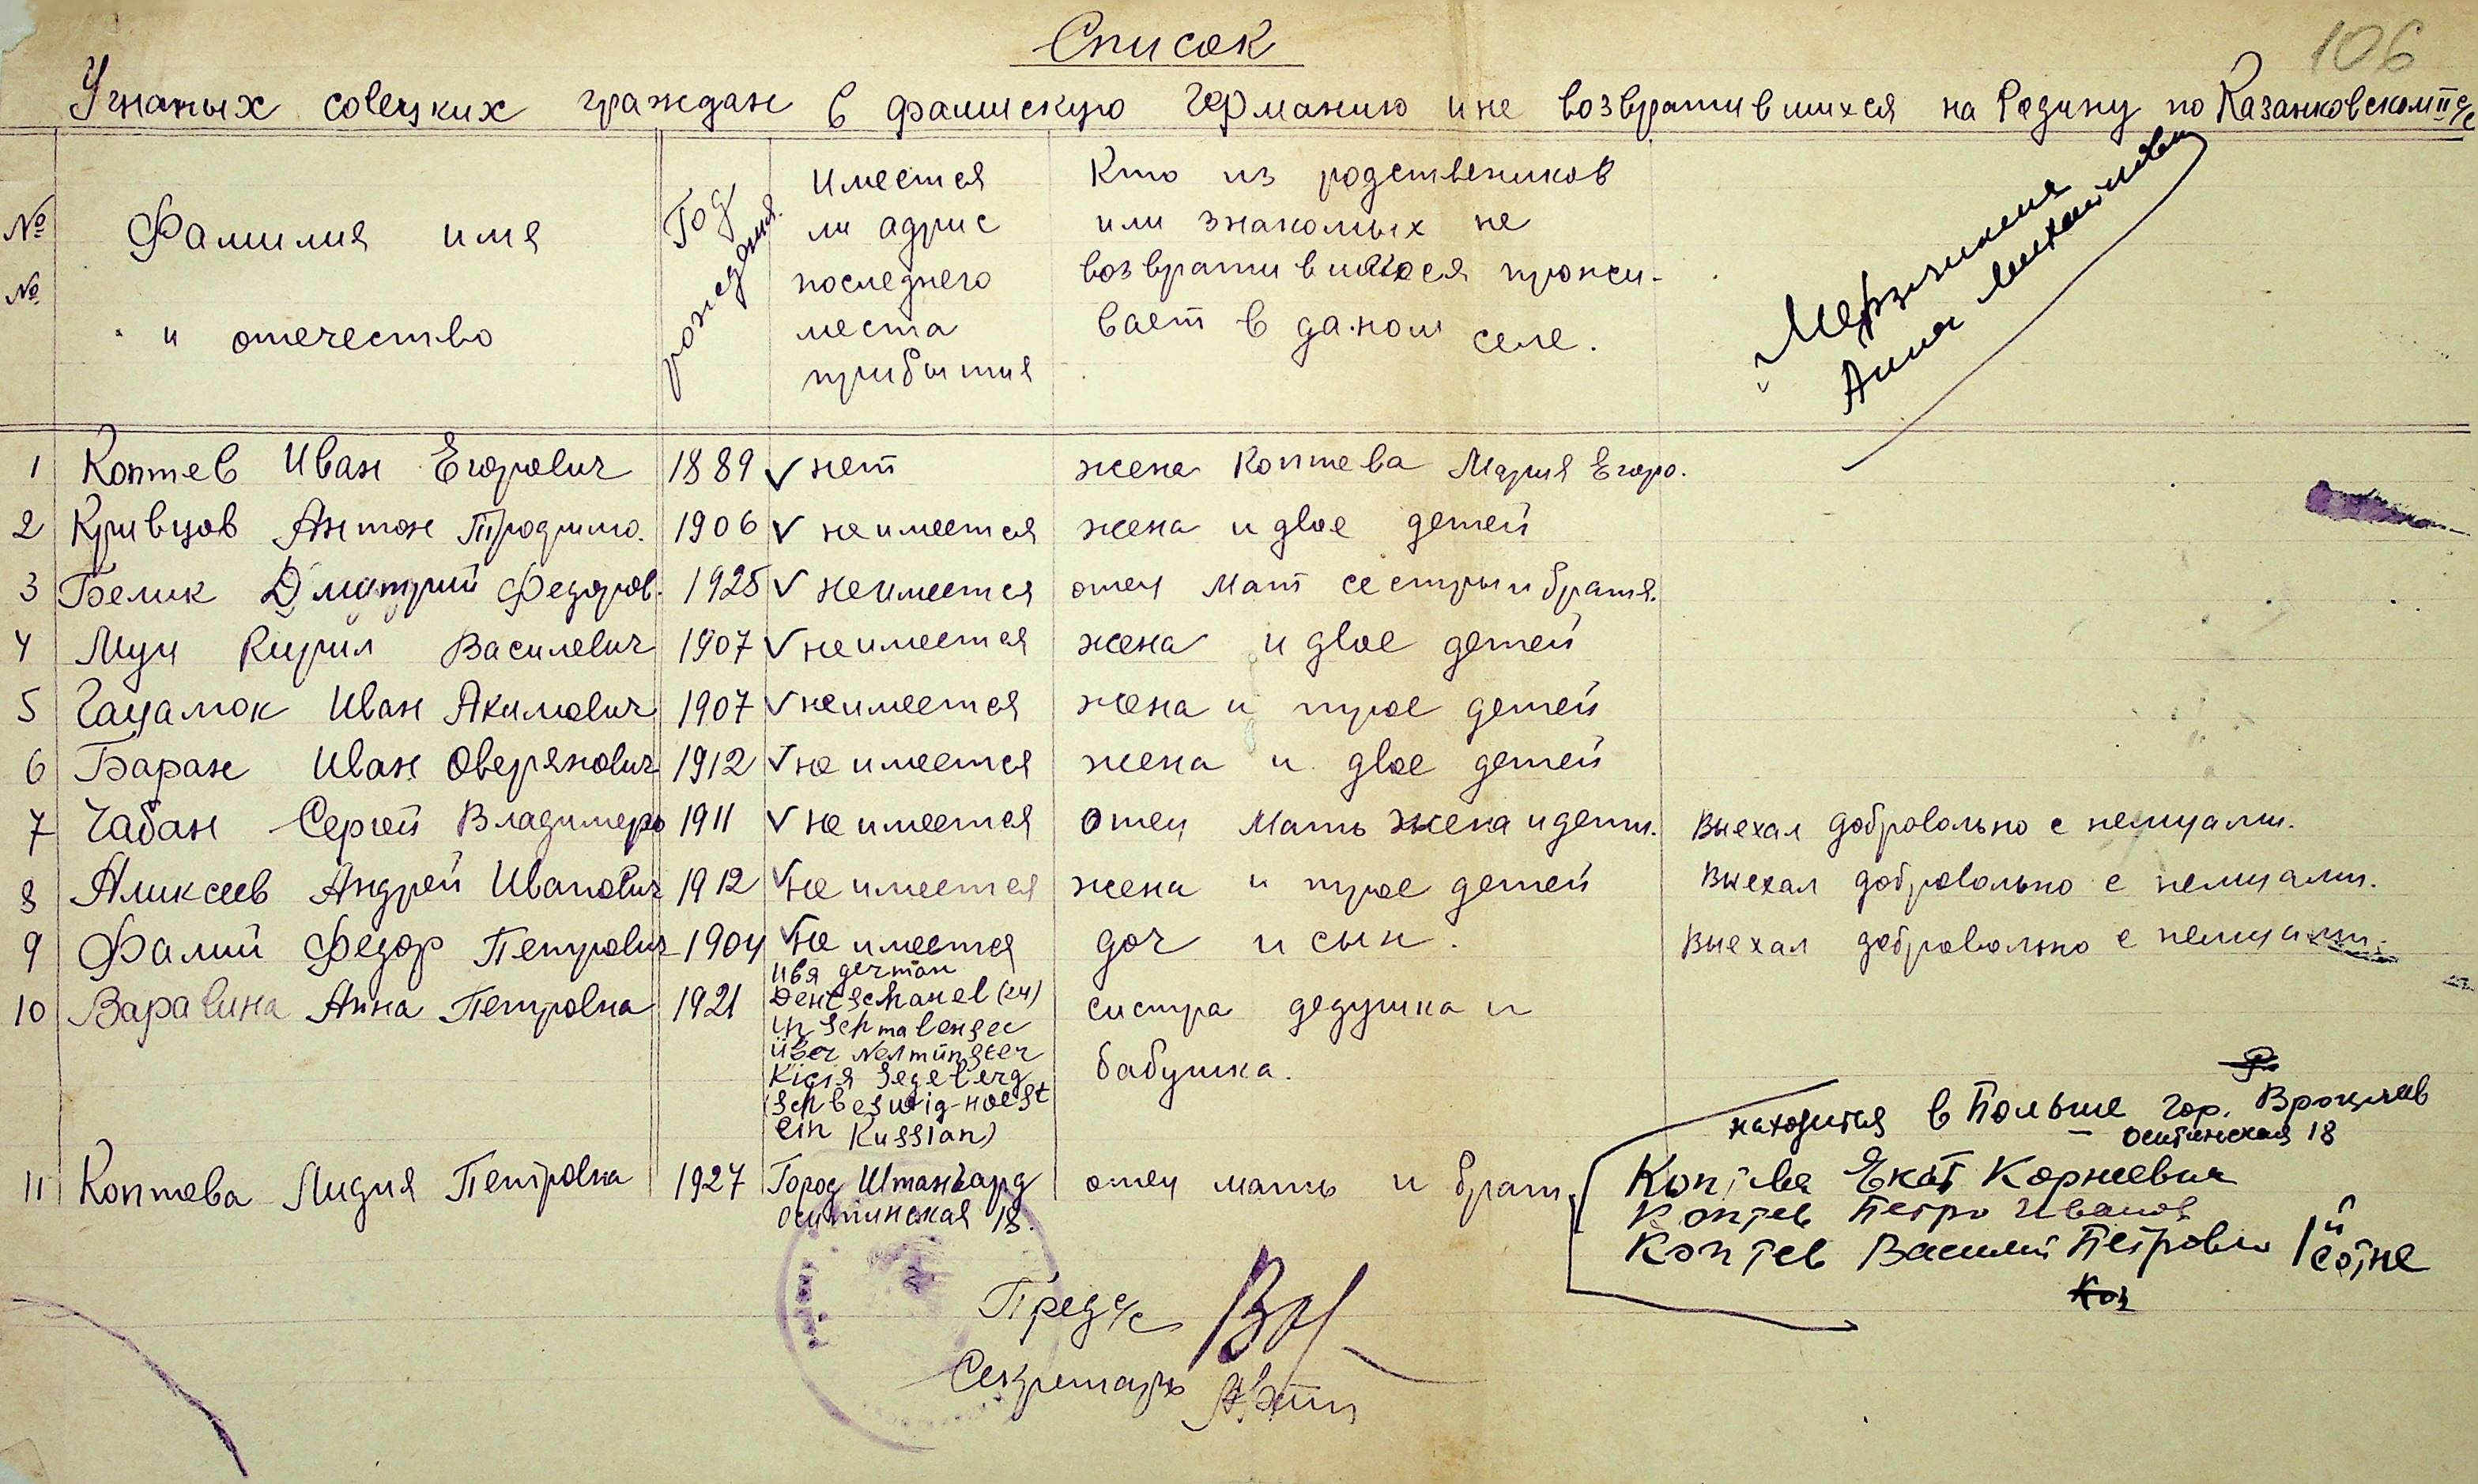 106
Список
Угнаных совецких граждан в фашискую Германию и не возвратившихся на Родину по Казанковском II с/с
№ №
Фамилия имя
и отечество
Год рождения.
Имеется
ли адрис
последнего
места
прибытия
Кто из родствеников
или знакомых не
возвратившихся прожи-
вает в даном селе.
Анна Михайловна
1 Коптев Иван Егорович 1889 ✓ нет жена Коптева Мария Егоро.
2 Кривцов Антон 1906 ✓ не имеется жена и двое детей
3 Белик Дмитрий Федоров. 1925 ✓ не имеется отец мат сестры и братя.
4 Муц Кирил Василевич 1907 ✓ не имеется жена и двое детей
5 Гацамок Иван Акимович 1907 ✓ не имеется жена и трое детей
6 Баран Иван Оверянович 1912 ✓ не имеется жена и двое детей
7 Чабан Сергей Владимеро 1911 ✓ не имеется Отец Мать жена и дети. Выехал добровольно с немцами.
8 Аликсеев Андрей Иванович 1912 ✓ не имеется жена и трое детей Выехал добровольно с немцами.
9 Фалий Федор Петрович 1904 ✓ не имеется доч и сын. Выехал добровольно с немцами.
10 Варавина Анна Петровна 1921 систра дедушка и
бабушка.
german
(24)
in Schmalensee
über Neumünster
Segeberg
(Schbeswig-Hoest
ein Russian)
11 Коптева Лидия Петровна 1927 Город Штангард отец мать и брат
18.
находится в Польше гор. Вроцлав
18
Коптева Екат Корнеевич
Коптев Петро Иванов
Коптев Василий Петрович
Пред с/с
Секретарь